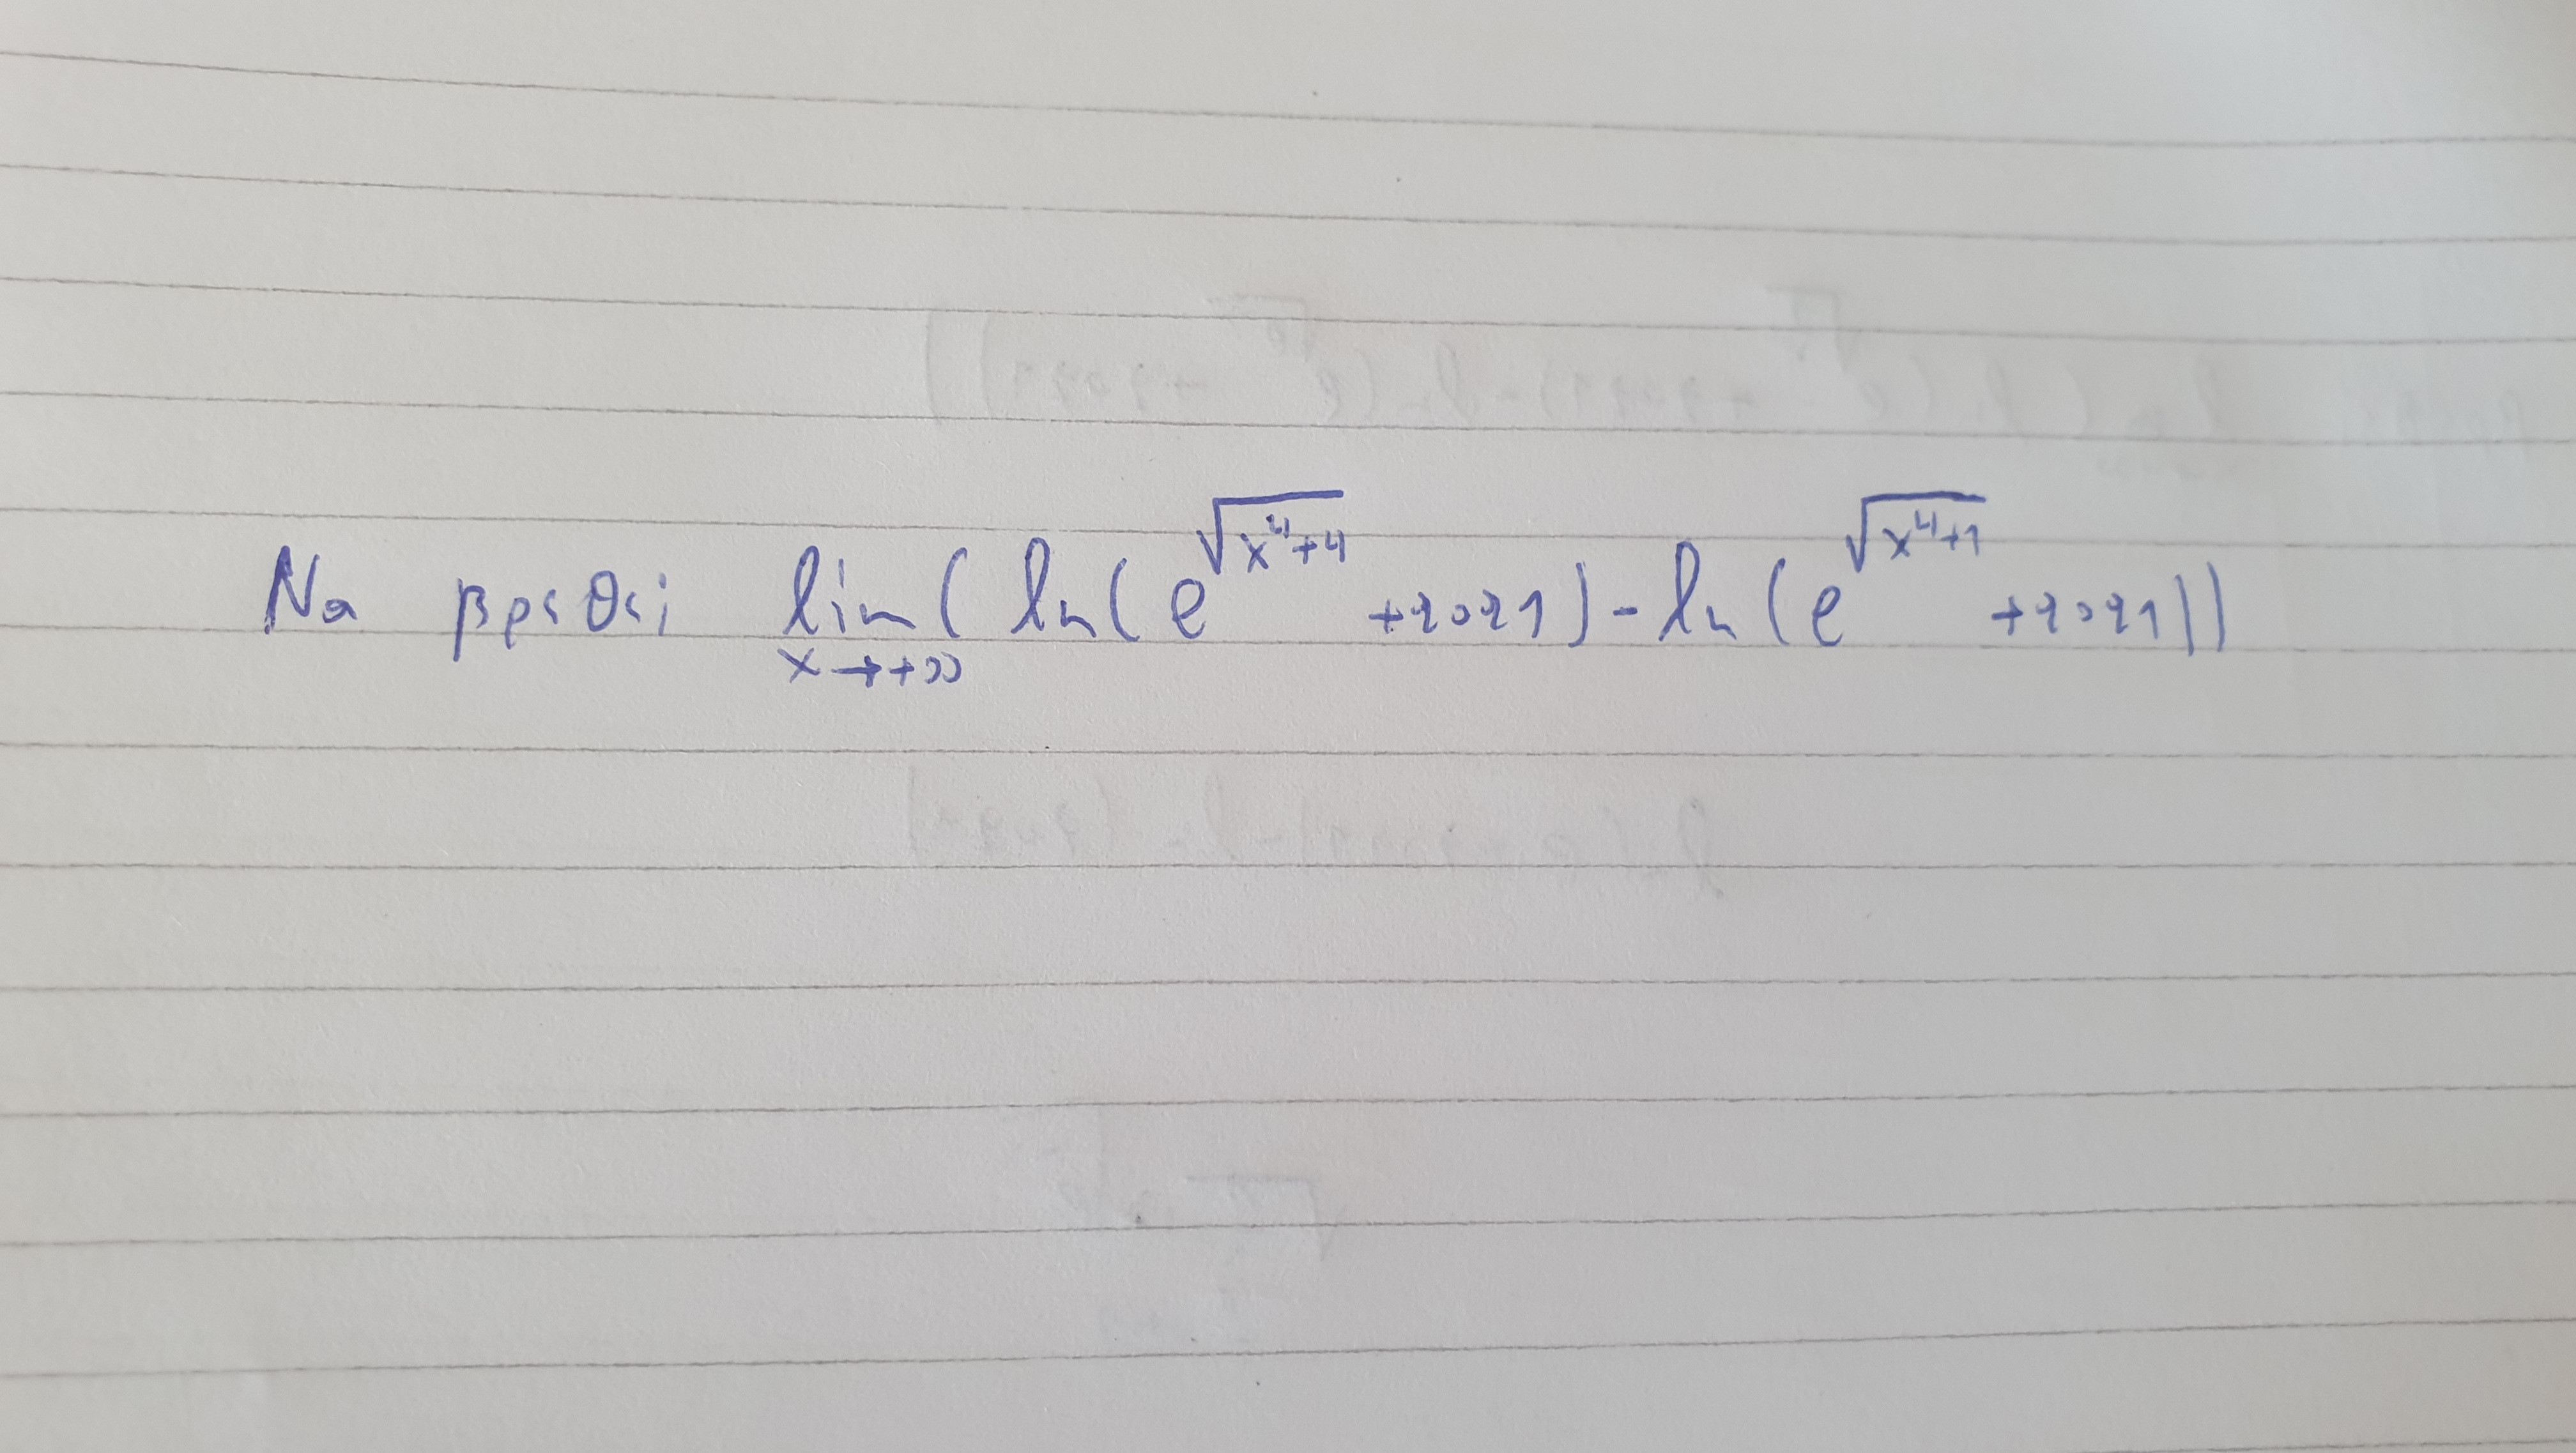 Να βρεθεί lim x→+∞ ( ln(e^√(x^4+4) +2021) - ln(e^√(x^4+1) +2021))